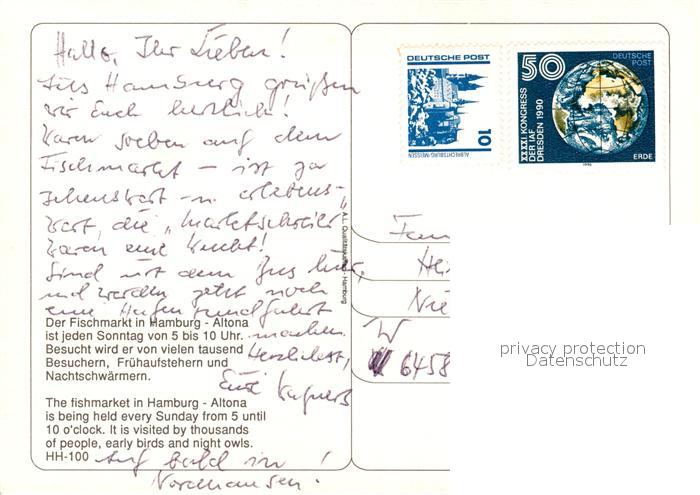 Hallo, Ihr Lieben!
Aus Hamburg grüßen
wir Euch herzlich!
Waren soeben auf dem
Fischmarkt – ist ja
sehenswert u. erlebens-
wert, die „Marktschreier"
waren eine Wucht!
Sind mit dem Bus hier,
und werden jetzt noch
eine Hafenrundfahrt
machen.
Herzlichst,
Eure Wagners
Auf bald in
Nordhausen!
Der Fischmarkt in Hamburg - Altona
ist jeden Sonntag von 5 bis 10 Uhr.
Besucht wird er von vielen tausend
Besuchern, Frühaufstehern und
Nachtschwärmern.
The fishmarket in Hamburg - Altona
is being held every Sunday from 5 until
10 o'clock. It is visited by thousands
of people, early birds and night owls.
HH-100
DEUTSCHE POST
10
ALBRECHTSBURG MEISSEN
50
DEUTSCHE
POST
XXXXI. KONGRESS
DER IAF
DRESDEN 1990
ERDE
1990
Fam
Hei
Nie
W
6458
privacy protection
Datenschutz